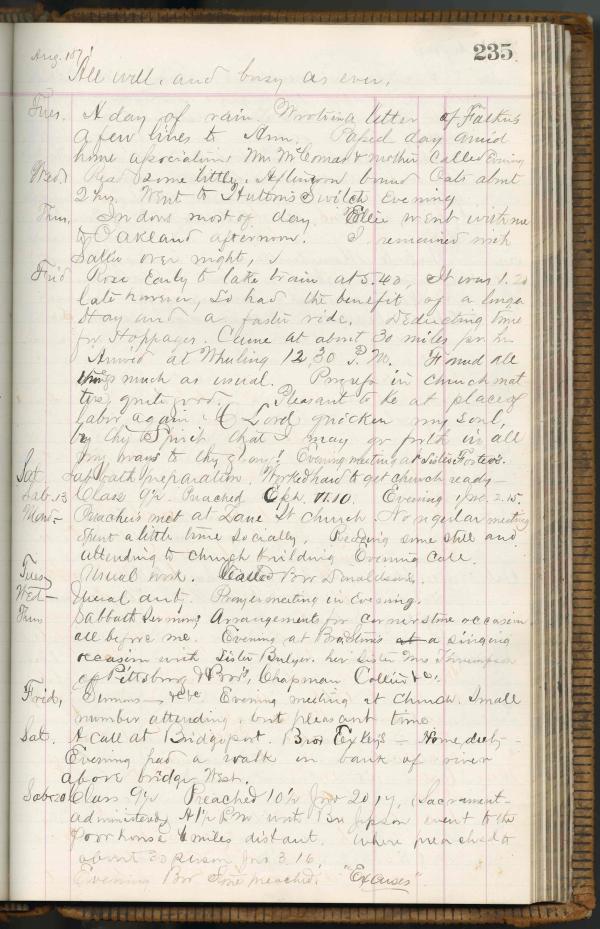 235
Aug. 1871
All well, and busy as ever.
Tues. A day of rain. Wrote a letter of Father's
a few lines to Ann. Passed day amid
home association Mrs McComas & mother called Evening
Wed. Read some little. Afternoon bound Oats about
2 hrs. Went to Hutton's Switch Evening
Thurs. Indoors most of day. Ellie went with me
to Oakland afternoon. I remained with
Sallie over night,
Frid Rose Early to take train at 5.40, It was 1.20
late however, so had the benefit of a longer
stay and a faster ride. Deducting time
for stoppages. Came at about 30 miles per hr
Arrived at Wheeling 12,30 P.M. Found all
things much as usual. Progress in church mat
ters quite good. Pleasant to be at place of
labor again. O Lord quicken my soul,
by thy Spirit that I may go forth in all
my ways to thy glory! Evening meeting at Sister Foster's.
Sat Sabbath preparation. Worked hard to get church ready
Sab. 13 Class 9½. Preached Eph. VI.10. Evening 2.15.
Mond- Preachers met at Zane St church. No regular meeting
Spent a little time socially. Reading some still and
attending to church building Evening Call.
Tuesy Usual work. Called Bro Donaldson's.
Wed- Usual duty. Prayer meeting in Evening.
Thur Sabbath Sermons, Arrangements for corner stone occasion
all before me. Evening at Bro. a singing
occasion with Sister Bulger. her sister Mrs Thompson
of Pittsburg & Bro's, Chapman Collier &c.
Frid, Sermons &c &c Evening meeting at church. Small
number attending, but pleasant time
Sat. A call at Bridgeport. Bro Exley's - Home, duty -
Evening had a walk on bank of river
above bridge West.
Sab 20 Class 9½ Preached 10½ Jno 20 17, Sacrament
administered, P.M with Bro Jepson went to the
Poor house 6 miles distant. Where preached to
about 30 persons Jno 3.16.
Evening Bro preached. "Excuses".